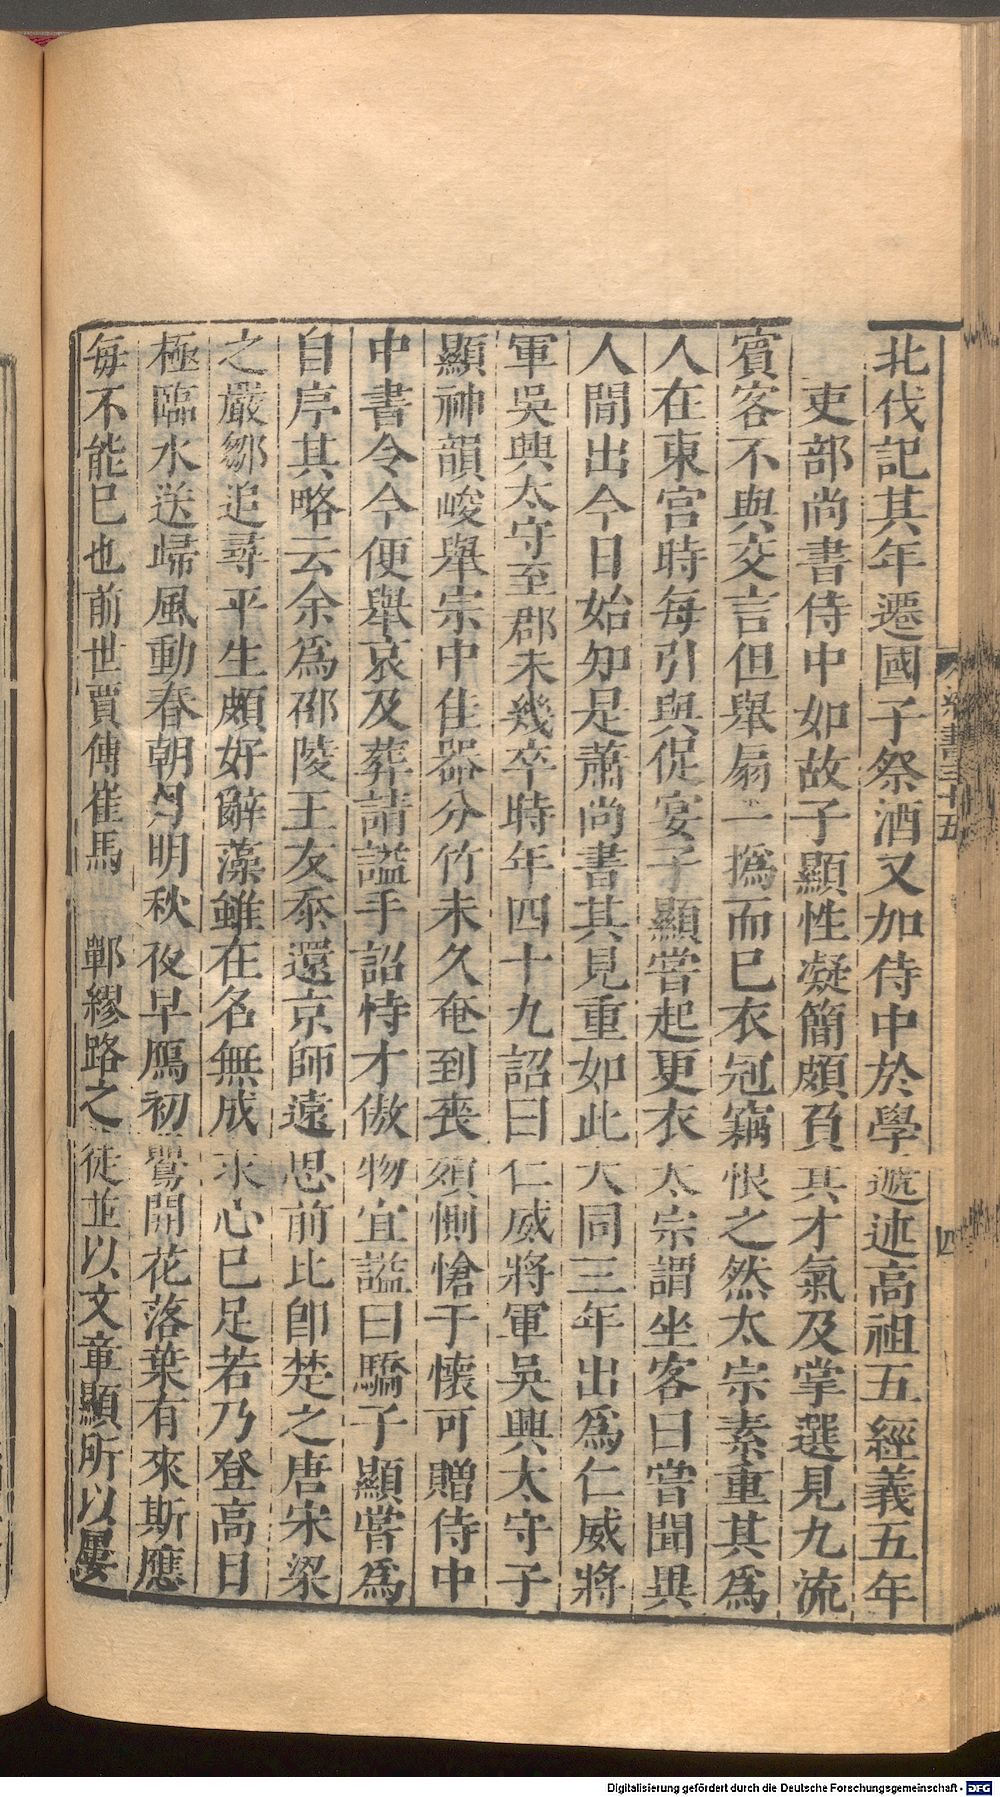 北伐記其年遷國子祭酒又加侍中於學遞述高祖五經義五年
吏部尚書侍中如故子顯性凝簡頗負其才氣及掌選見九流
賓客不與交言但舉扇一撝而已衣冠竊恨之然太宗素重其爲
人在東宮時每引與促宴子顯嘗起更衣太宗謂坐客曰嘗聞異
人間出今日始知是蕭尚書其見重如此大同三年出爲仁威將
軍吳興太守至郡未幾卒時年四十九詔曰仁威將軍吳興太守子
顯神韻峻舉宗中佳器分竹未久奄到喪殞惻愴于懷可贈侍中
中書令今便舉哀及葬請謚手詔恃才傲物宜謚曰驕子顯嘗爲
自序其略云余爲邵陵王友忝還京師遠思前比卽楚之唐宋梁
之嚴鄒追尋平生頗好辭藻雖在名無成求心已足若乃登高目
極臨水送歸風動春朝月明秋夜早鴈初鸎開花落葉有來斯應
每不能已也前世賈傅崔馬 鄲繆路之徒並以文章顯所以屢
梁書三十五
四
Digitalisierung gefördert durch die Deutsche Forschungsgemeinschaft - DFG